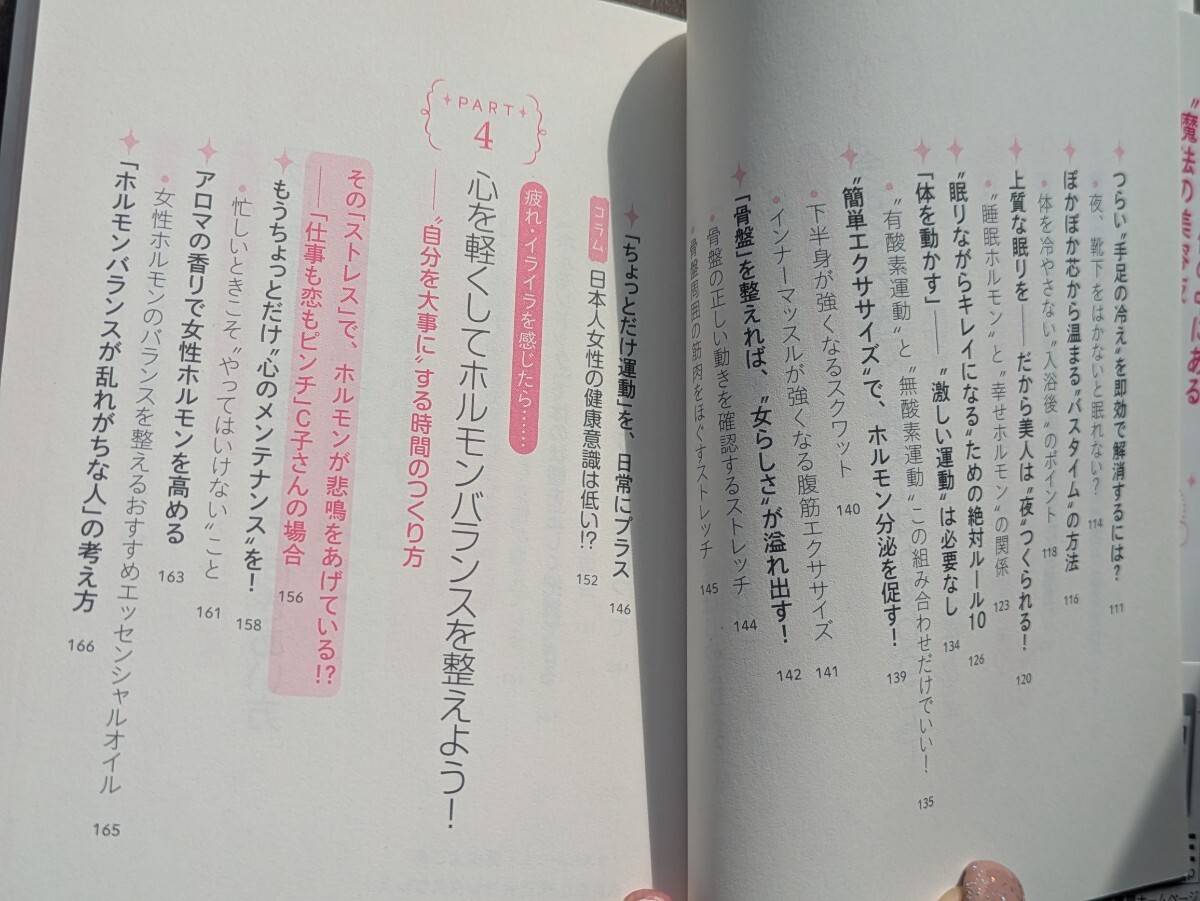 つらい“手足の冷え”を即効で解消するには? 111
・夜、靴下をはかないと眠れない? 114
ぽかぽか芯から温まる“バスタイム”の方法 116
・体を冷やさない“入浴後”のポイント 118
上質な眠りを――だから美人は“夜”つくられる! 120
・“睡眠ホルモン”と“幸せホルモン”の関係 123
“眠りながらキレイになる”ための絶対ルール10 126
「体を動かす」――“激しい運動”は必要なし 134
・“有酸素運動”と“無酸素運動”この組み合わせだけでいい! 135
“簡単エクササイズ”で、ホルモン分泌を促す! 139
・下半身が強くなるスクワット 140
・インナーマッスルが強くなる腹筋エクササイズ 141
「骨盤」を整えれば、“女らしさ”が溢れ出す! 142
・骨盤の正しい動きを確認するストレッチ 144
・骨盤周囲の筋肉をほぐすストレッチ 145
「ちょっとだけ運動」を、日常にプラス 146
コラム 日本人女性の健康意識は低い!? 152
PART
4
疲れ・イライラを感じたら……
心を軽くしてホルモンバランスを整えよう!
――“自分を大事に”する時間のつくり方
その「ストレス」で、ホルモンが悲鳴をあげている!?
――「仕事も恋もピンチ」C子さんの場合 156
もうちょっとだけ“心のメンテナンス”を! 158
・忙しいときこそ“やってはいけない”こと 161
アロマの香りで女性ホルモンを高める 163
・女性ホルモンのバランスを整えるおすすめエッセンシャルオイル 165
「ホルモンバランスが乱れがちな人」の考え方 166